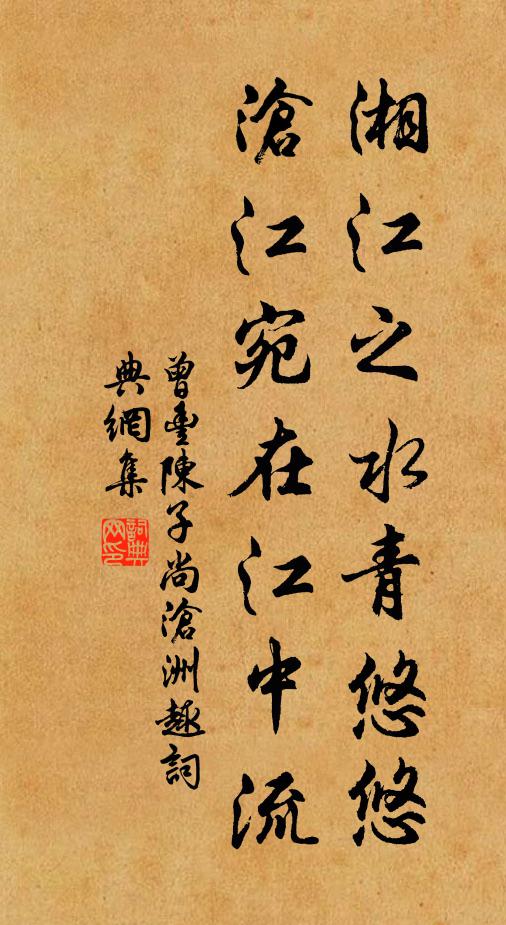 湘江之水青悠悠
滄江宛在江中流
曾豐陳子尚滄洲趣詞
典網集
詞典網印